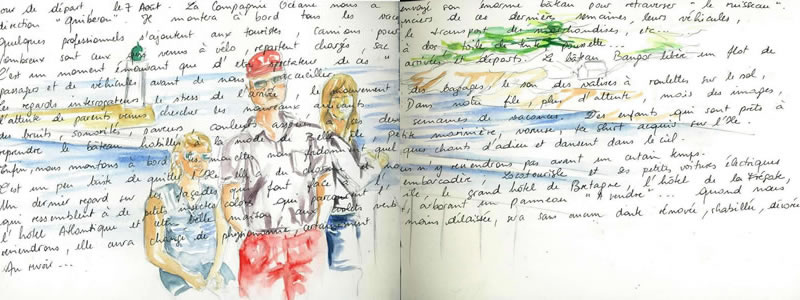 our de départ le 7 Août. La Compagnie Océane nous a envoyé son énorme bateau pour retraverser "le ruisseau"
direction "Quiberon". Il montera à bord tous les vacanciers de ces dernières semaines, leurs véhicules,
quelques professionnels s'ajoutent aux touristes, camions pour le transport de marchandises, etc...
nombreux sont aux venus à vélo repartent chargés, sac à dos toile de tente poussette
C'est un moment émouvant que d'être spectateur de ces arrivées et départs. Le bateau Bangor libère un flot de
passagers et de véhicules avant de nous accueillir
Les regards interrogateurs, le stress de l'arrivée, le mouvement des bagages, le son des valises à roulettes sur le sol,
l'attente de parents venus chercher les nouveaux arrivants. Dans notre file, plus d'attente mais des images,
des bruits, sonorités, saveurs couleurs de ces semaines de vacances. Des enfants qui sont prêts à
reprendre le bateau habillés à la mode de Belle Ile petite marinière, vareuse, ta shirt acquis sur l'Ile.
Enfin, nous montons à bord, les mouettes nous fredonnent quelques chants d'adieu et dansent dans le ciel.
C'est un peu triste de quitter l'Ile, n'y reviendrons pas avant un certain temps.
Un dernier regard sur les façades qui font face à l'embarcadère, Locatourisle et ses petites voitures électriques
qui ressemblent à de petits insectes colorés qui parcourent l' le grand hôtel de Bretagne, l'hôtel de la Frégate,
l'hôtel Atlantique et cette belle maison aux volets verts, arborant un panneau "A vendre"... Quand nous
reviendrons, elle aura changé de physionomie, certainement moins délaissée, sera sans aucun doute rénovée, rhabillée, décorée
Au revoir...